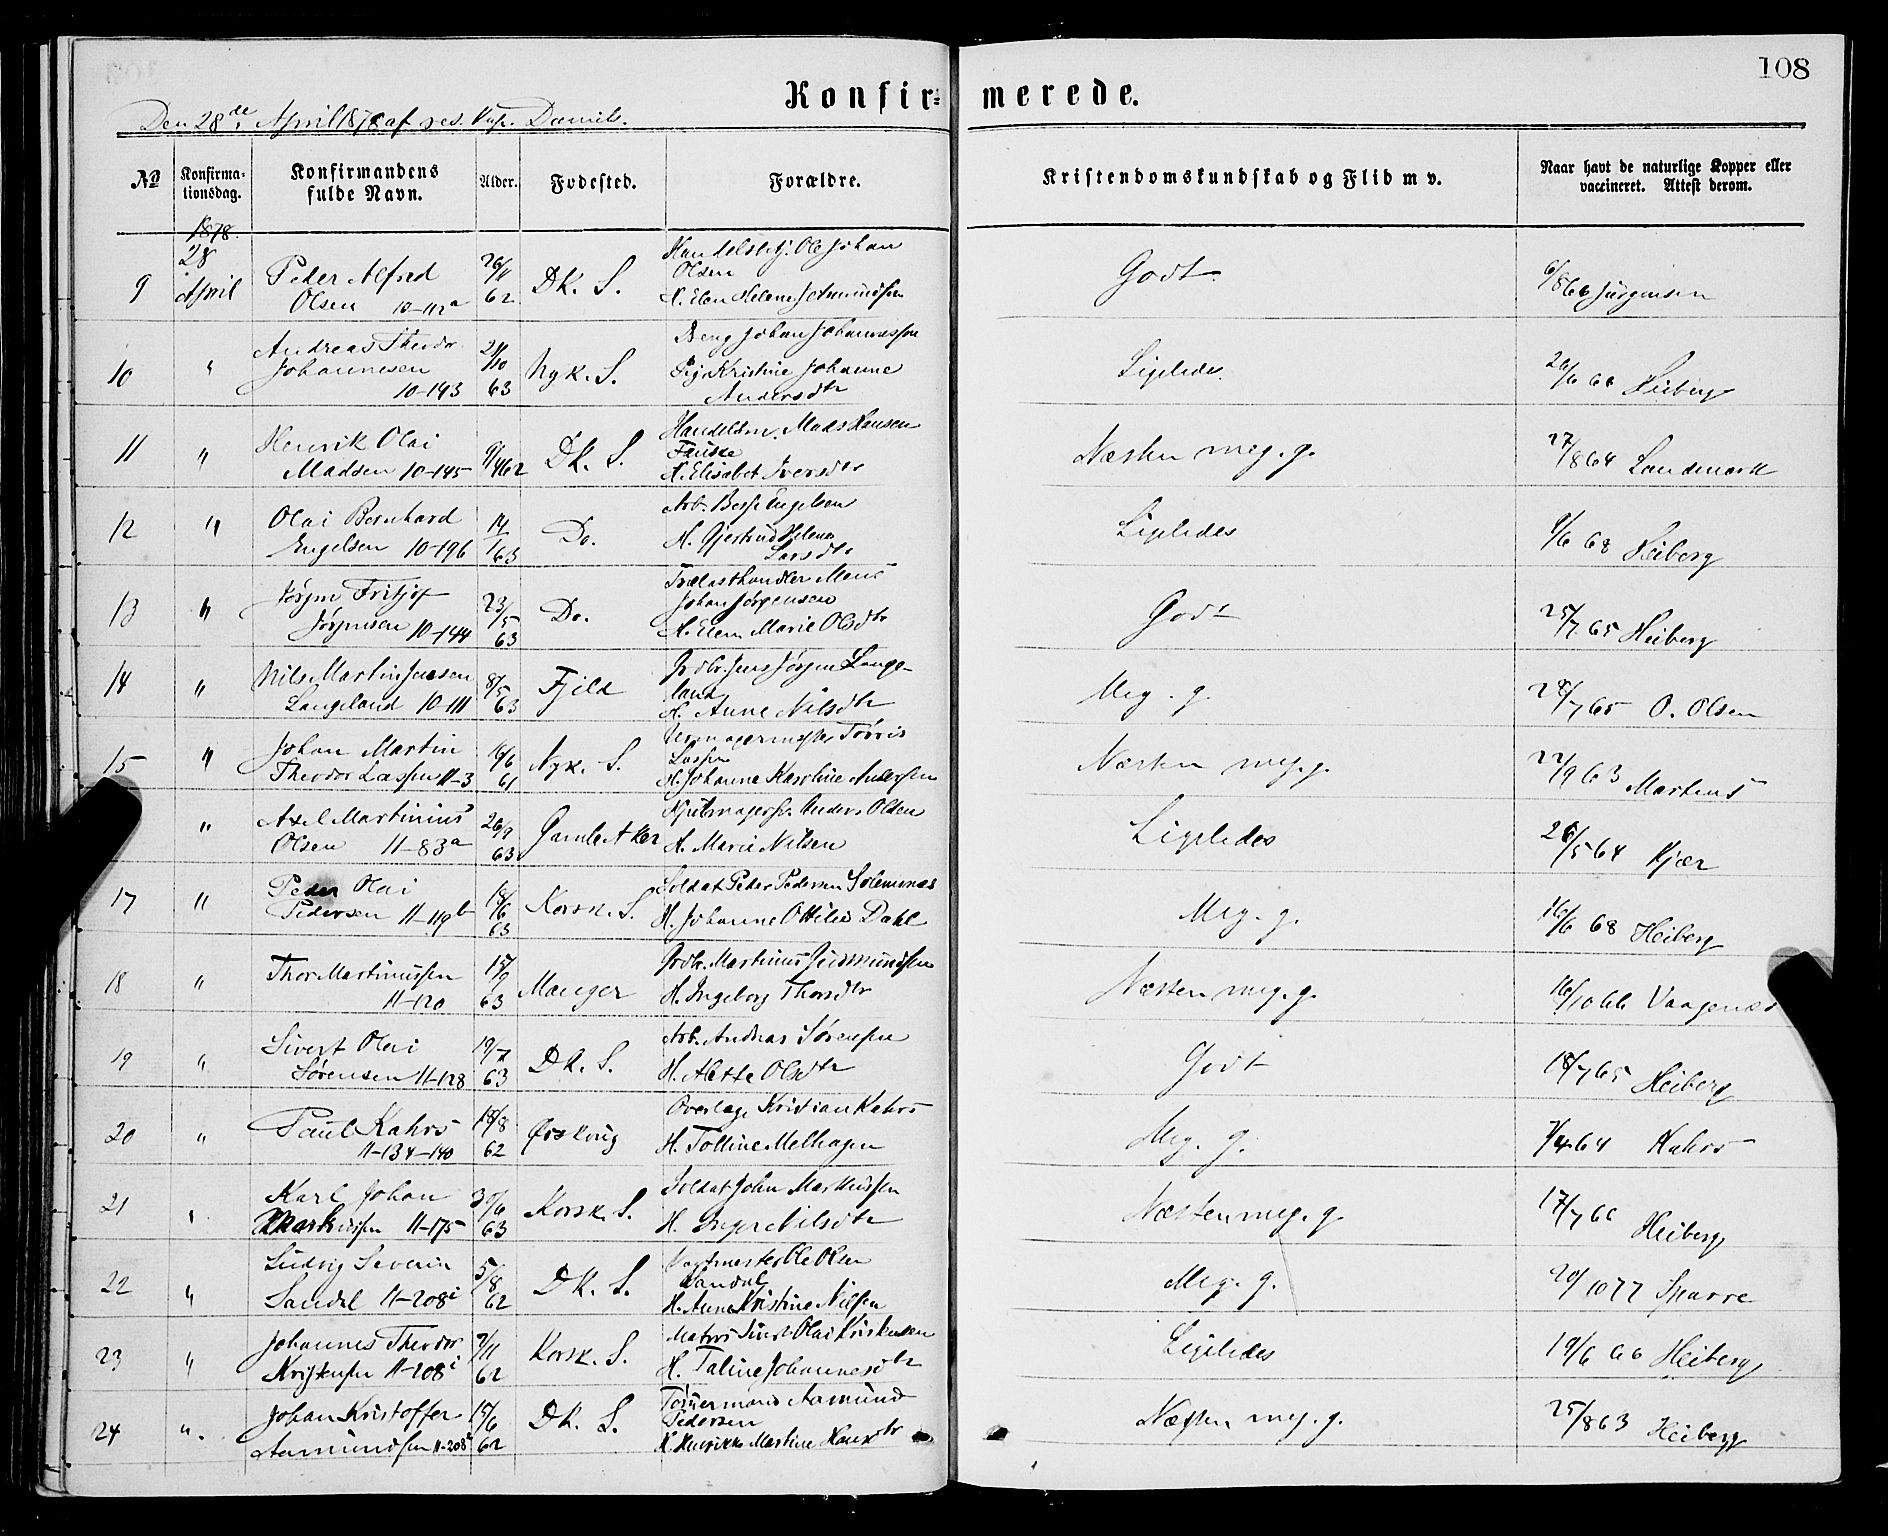 108
Konfir= merede.
Den 28de April 1878 af res. Kap. Daniels.
No
Konfirma-
tionsdag.
Konfirmandens
fulde Navn.
Alder.
Fødested.
Forældre.
Kristendomskundskab og Flid m v.
Naar havt de naturlige Kopper eller
vaccineret. Attest derom.
1878.
28
April
9
Peder Alfred
Olsen 10-112a
26/11
62
Dk. S.
Ole Johan
Olsen
H. Elen Helene
Godt
6/8 66 Jürgensen
10 "
Andreas Theodor
Johannesen
10-143
21/10
63
Nyk. S.
Johan Johannessen
Pig Kristine Johanne
Andersdtr
Ligeledes.
26/6 66 Heiberg
11 "
Henrik Olai
Madsen 10-145
9/4 62
Dk. S.
Handelsm. Mads Hansen
Fauske
H. Elisabet Iversdtr
Næsten meg. g.
27/8 64 Landmark
12 "
Olai Bernhard
Engelsen 10-196
14/1 63
Do.
Arb. Engelsen
H. Gjertrud Helena
Larsdtr
Ligeledes
9/6 68 Heiberg
13 "
Jørgen Fritjof
Jørgensen 10-144
23/5
63
Do.
Trælasthandler Mons
Johan Jørgensen
H. Elen Marie Olsdtr
Godt
25/7 65 Heiberg
14 "
Nils Martin Jensen
Langeland 10-111
8/5
63
Fjeld
Grdbr. Jens Jørgen Lange-
land
H. Anne Nilsdtr
Meg. g.
28/7 65 O. Olsen
15 "
Johan Martin
Theodor Lassen 11-3
16/6
61
Nyk. S.
Tørris
Lassen
H. Johanne Karoline Andersen
Næsten meg. g.
22/9 63 Martens
"
Axel Martinius
Olsen 11-83a
26/9
63
Gamle Aker
Anders Olsen
H. Marie Nilsen
Ligeledes
26/5 64 Kjær
17 "
Peder Olai
Pedersen 11-119b
18/6
63
Korsk. S.
Soldat Peder Pedersen Solemnes
H. Johanne Ottilie Dahl
Meg. g.
16/6 68 Heiberg
18 "
Thor Martinussen
11-120
15/9
63
Manger
Grdbr. Martinus Gudmundsen
H. Ingeborg Thorsdtr
Næsten meg. g.
16/10 66 Vaagenæs
19 "
Sivert Olai
Sørensen 11-128
19/7
63
Dk. S.
Arb. Andreas Sørensen
H. Alette Olsdtr
Godt
18/7 65 Heiberg
20 "
Paul Kahrs
11-134-140
18/8
62
Ørskoug
Overlæge Kristian Kahrs
H. Tolline Melhagen
Meg. g.
7/4 64 Kahrs
21 "
Karl Johan
Markussen 11-175
30/6
63
Korsk. S.
Soldat John Markussen
H. Inger Nilsdtr
Næsten meg. g
17/7 66 Heiberg
22 "
Ludvig Severin
Sandal 11-208i
5/8
62
Dk. S.
Ole Olsen
Sandal
H. Anne Kristine Nilsen
Meg. g.
20/10 77 Sparre
23 "
Johannes Theodor
Kristensen 11-208i
7/11
62
Korsk. S.
Matros Olai Kristensen
H. Taline Johannesdtr
Ligeledes
19/6 66 Heiberg
24 "
Johan Kristoffer
Aamundsen 11-208i
15/6
62
Dk. S.
Tømmermand Aamund
Pedersen
H. Henrikke Martine Hansdtr
Næsten meg. g.
25/8 63 Heiberg